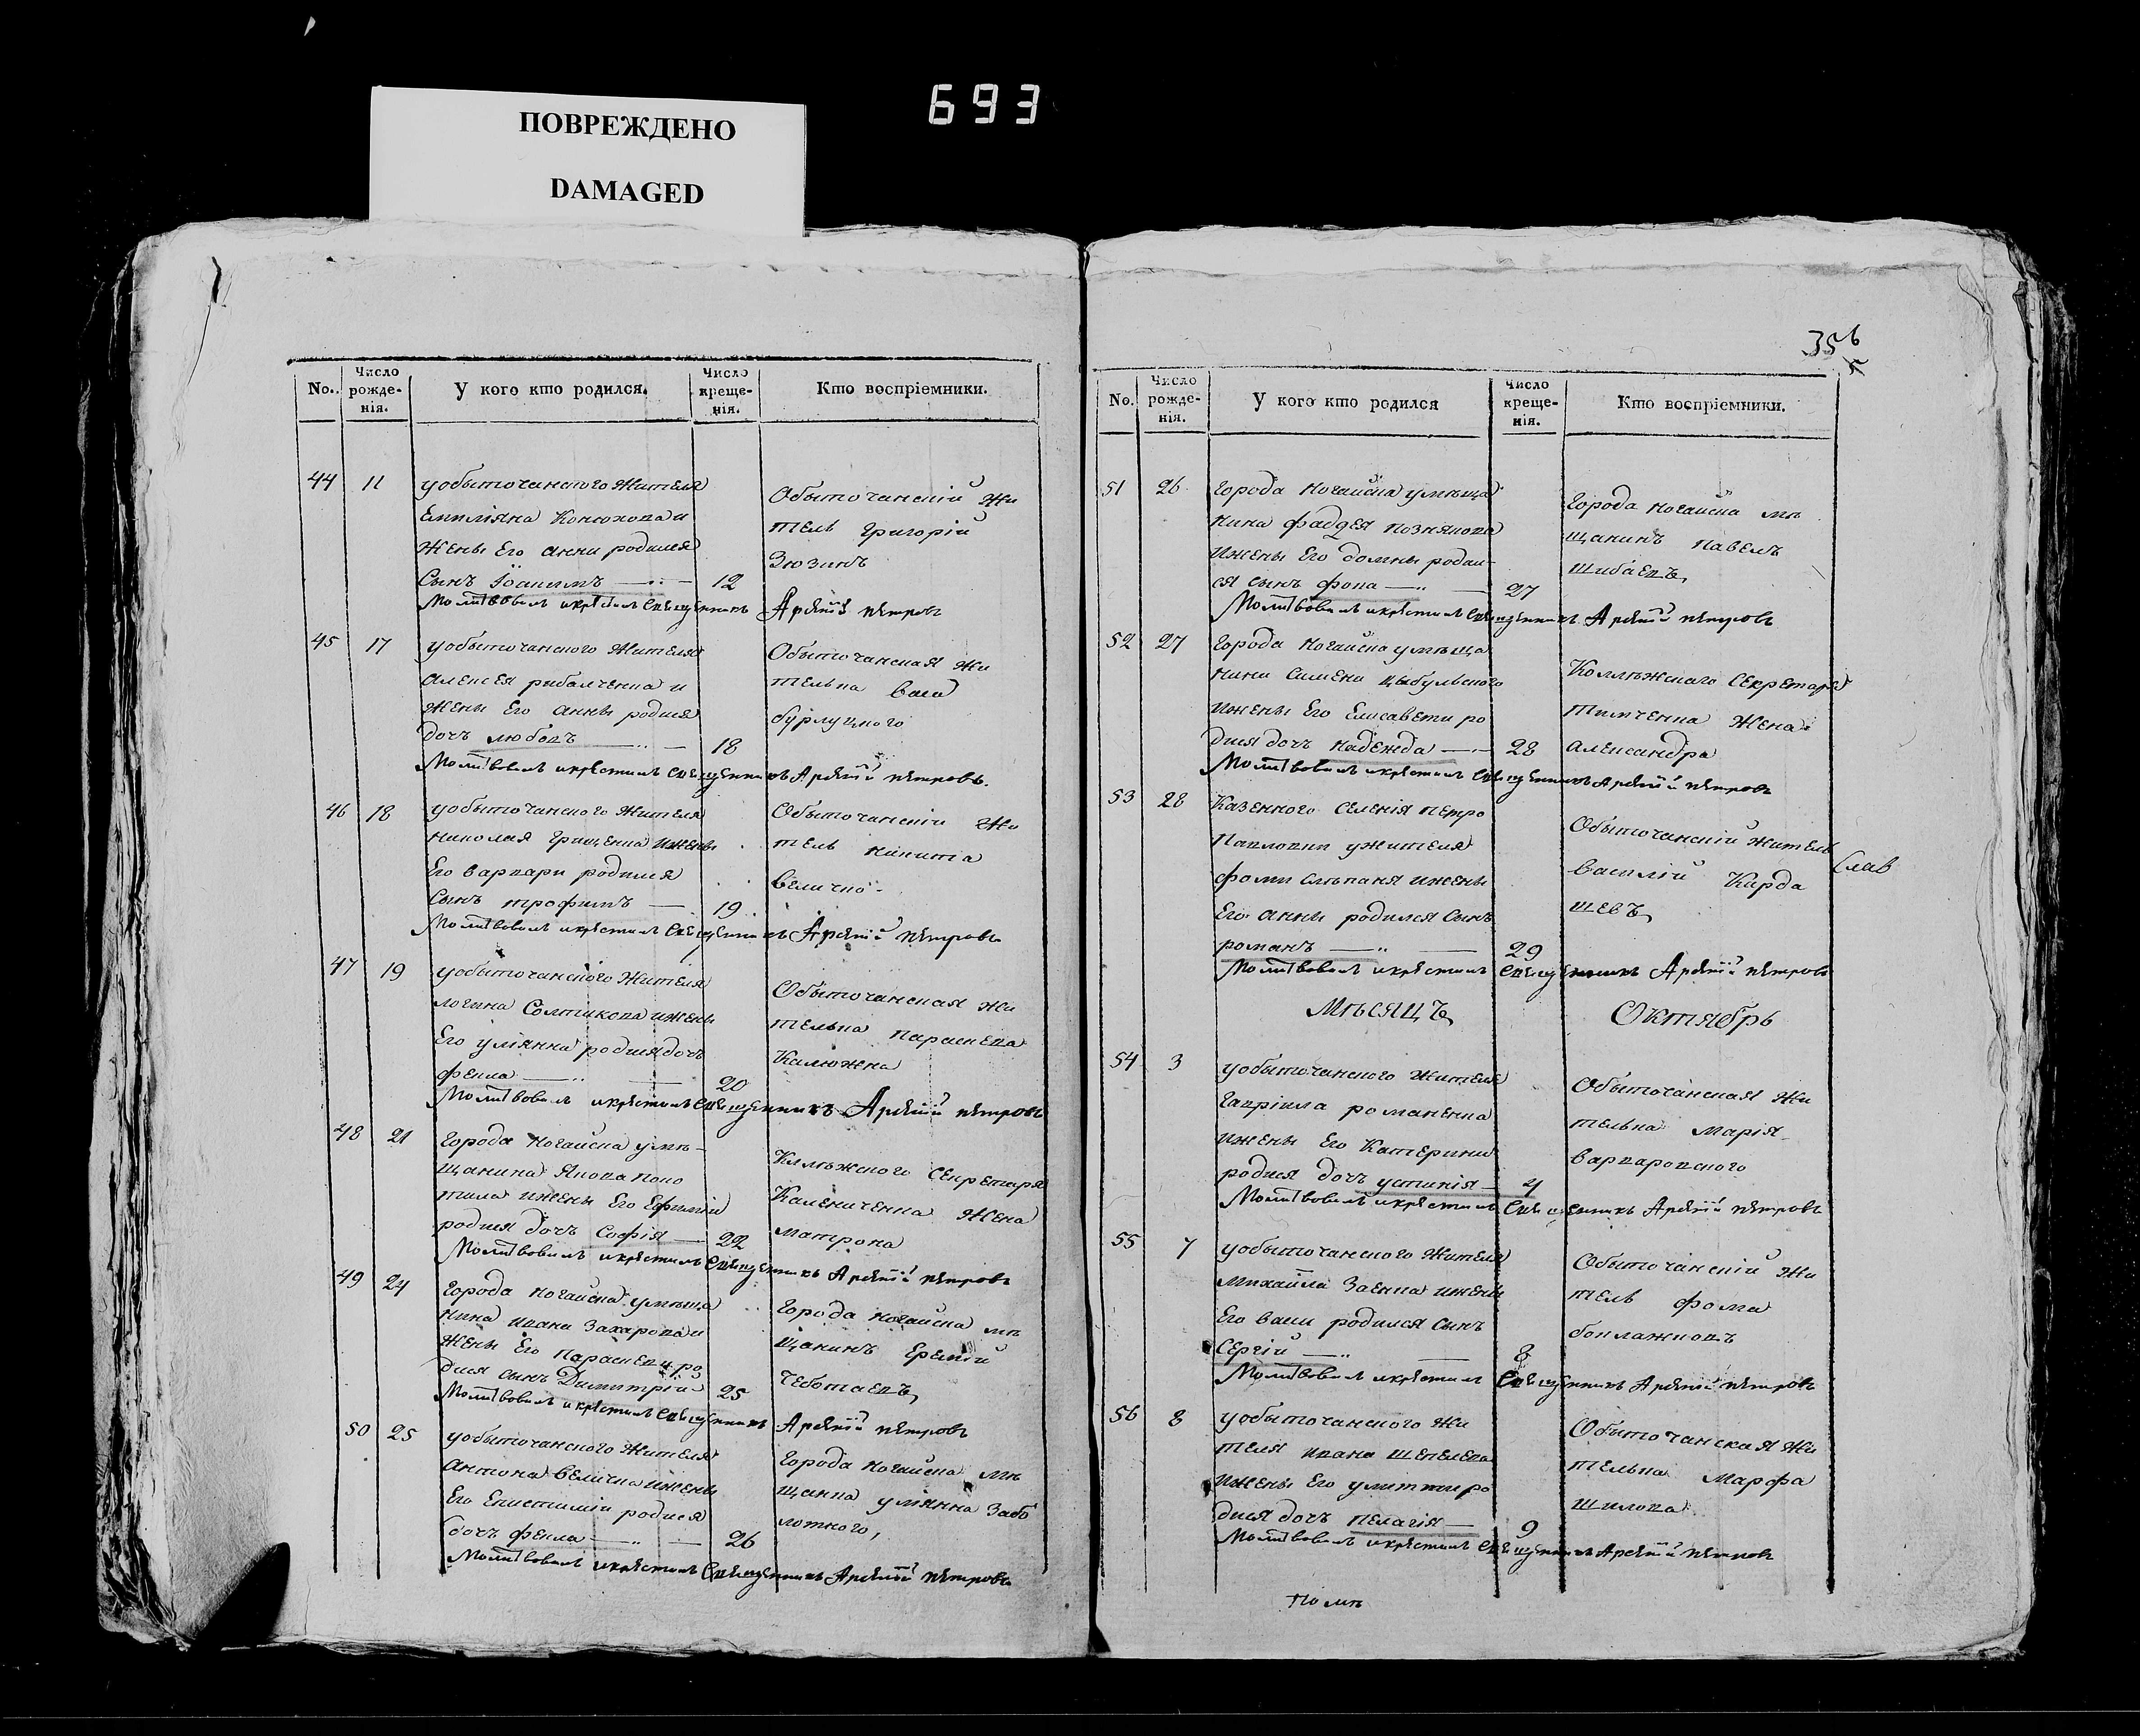 ПОВРЕЖДЕНО
DAMAGED
693
No.
Число рожде-нія.
У кого кто родился.
Число креще-нія.
Кто воспріемники.
44 11 уобыточанского жителя
Емиліяна Конюхова и
жены Его анни родился
Сынъ Іоакимъ 12
Обыточанскій жи
тель Григорій
Зюзинъ
Молитвовалъ икрестилъ Священникъ Арсеній петровъ
45 17 уобыточанского жителя
алексея рибалченка и
жены Его анны родися
дочъ любовъ 18
Обыточанская жи
телька васа
бурлуцкого
Молитвовалъ икрестилъ Священникъ Арсеній петровъ.
46 18 уобыточанского жителя
николая грищенка ижены
Его варвари родился
Сынъ трофимъ 19
Обыточанскій жи
тель никита
величко
Молитвовалъ икрестилъ Священникъ Арсеній петровъ
47 19 уобыточанского жителя
логина Солтикова ижены
Его уліянна родися дочъ
фекла 20
Обыточанская жи
телька параскева
Калюжна
Молитвовалъ икрестилъ Священникъ Арсеній петровъ
48 21 города ногайска умѣ-
щанина Якова поко
тила ижены Его Ефиміи
родися дочъ Софія 22
Кллѣжского Секретаря
Каленичнка жена
матрона
Молитвовалъ икрестилъ Священникъ Арсеній петровъ
49 24 города ногайска умѣща
нина ивана Захарова и
жены Его параскеви ро
дися сынъ Димитрій 25
города ногайска мѣ
щанинъ Еремій
Чеботаевъ
Молитвовалъ икрестилъ Священникъ Арсеній петровъ
50 25 уобыточанского жителя
антона величка ижены
Его Епистиміи родися
дочъ фекла 26
города ногайска мѣ
щанка уліянна Забо
лотного,
Молитвовалъ икрестилъ Священникъ Арсеній петровъ
356
No.
Число рожде-нія.
У кого кто родился
Число креще-нія.
Кто воспріемники.
51 26 города ногайска умѣща
нина фаддея познякова
ижены Его домны родил
ся сынъ фока 27
города ногайска мѣ
щанинъ павелъ
шибаевъ
Молитвовалъ икрестилъ Священникъ Арсеній петровъ
52 27 города ногайска умѣща
нина Симена цыбульского
ижены Его Елисавети ро
дися дочъ надежда 28
Коллѣжскаго Секретаря
тимченка жена
александра
Молитвовалъ икрестилъ Священникъ Арсеній петровъ
53 28 Казенного Селенія петро
павловки ужителя
фоми слѣпаня ижены
Его анны родился сынъ
романъ 29
Обыточанскій житель
василій Карда
шевъ
Молитвовалъ икрестилъ Священникъ Арсеній петровъ
Мѣсяцъ Октябрь
54 3 уобыточанского жителя
гавріила романенка
ижены Его Катерини
родися дочъ устинія 4
Обыточанская жи
телька марія
варваровского
Молитвовалъ икрестилъ Священникъ Арсеній петровъ
55 7 уобыточанского жителя
михайла Заенка ижены
Его васи родился сынъ
Сергій 8
Обыточанскій жи
тель фома
Молитвовалъ икрестилъ Священникъ Арсеній петровъ
56 8 уобыточанского жи
теля ивана шепелева
ижены Его улиттии ро
дися дочъ пелагія 9
Обыточанская жи
телька марфа
шилова
Молитвовалъ икрестилъ Священникъ Арсеній петровъ
по мѣ